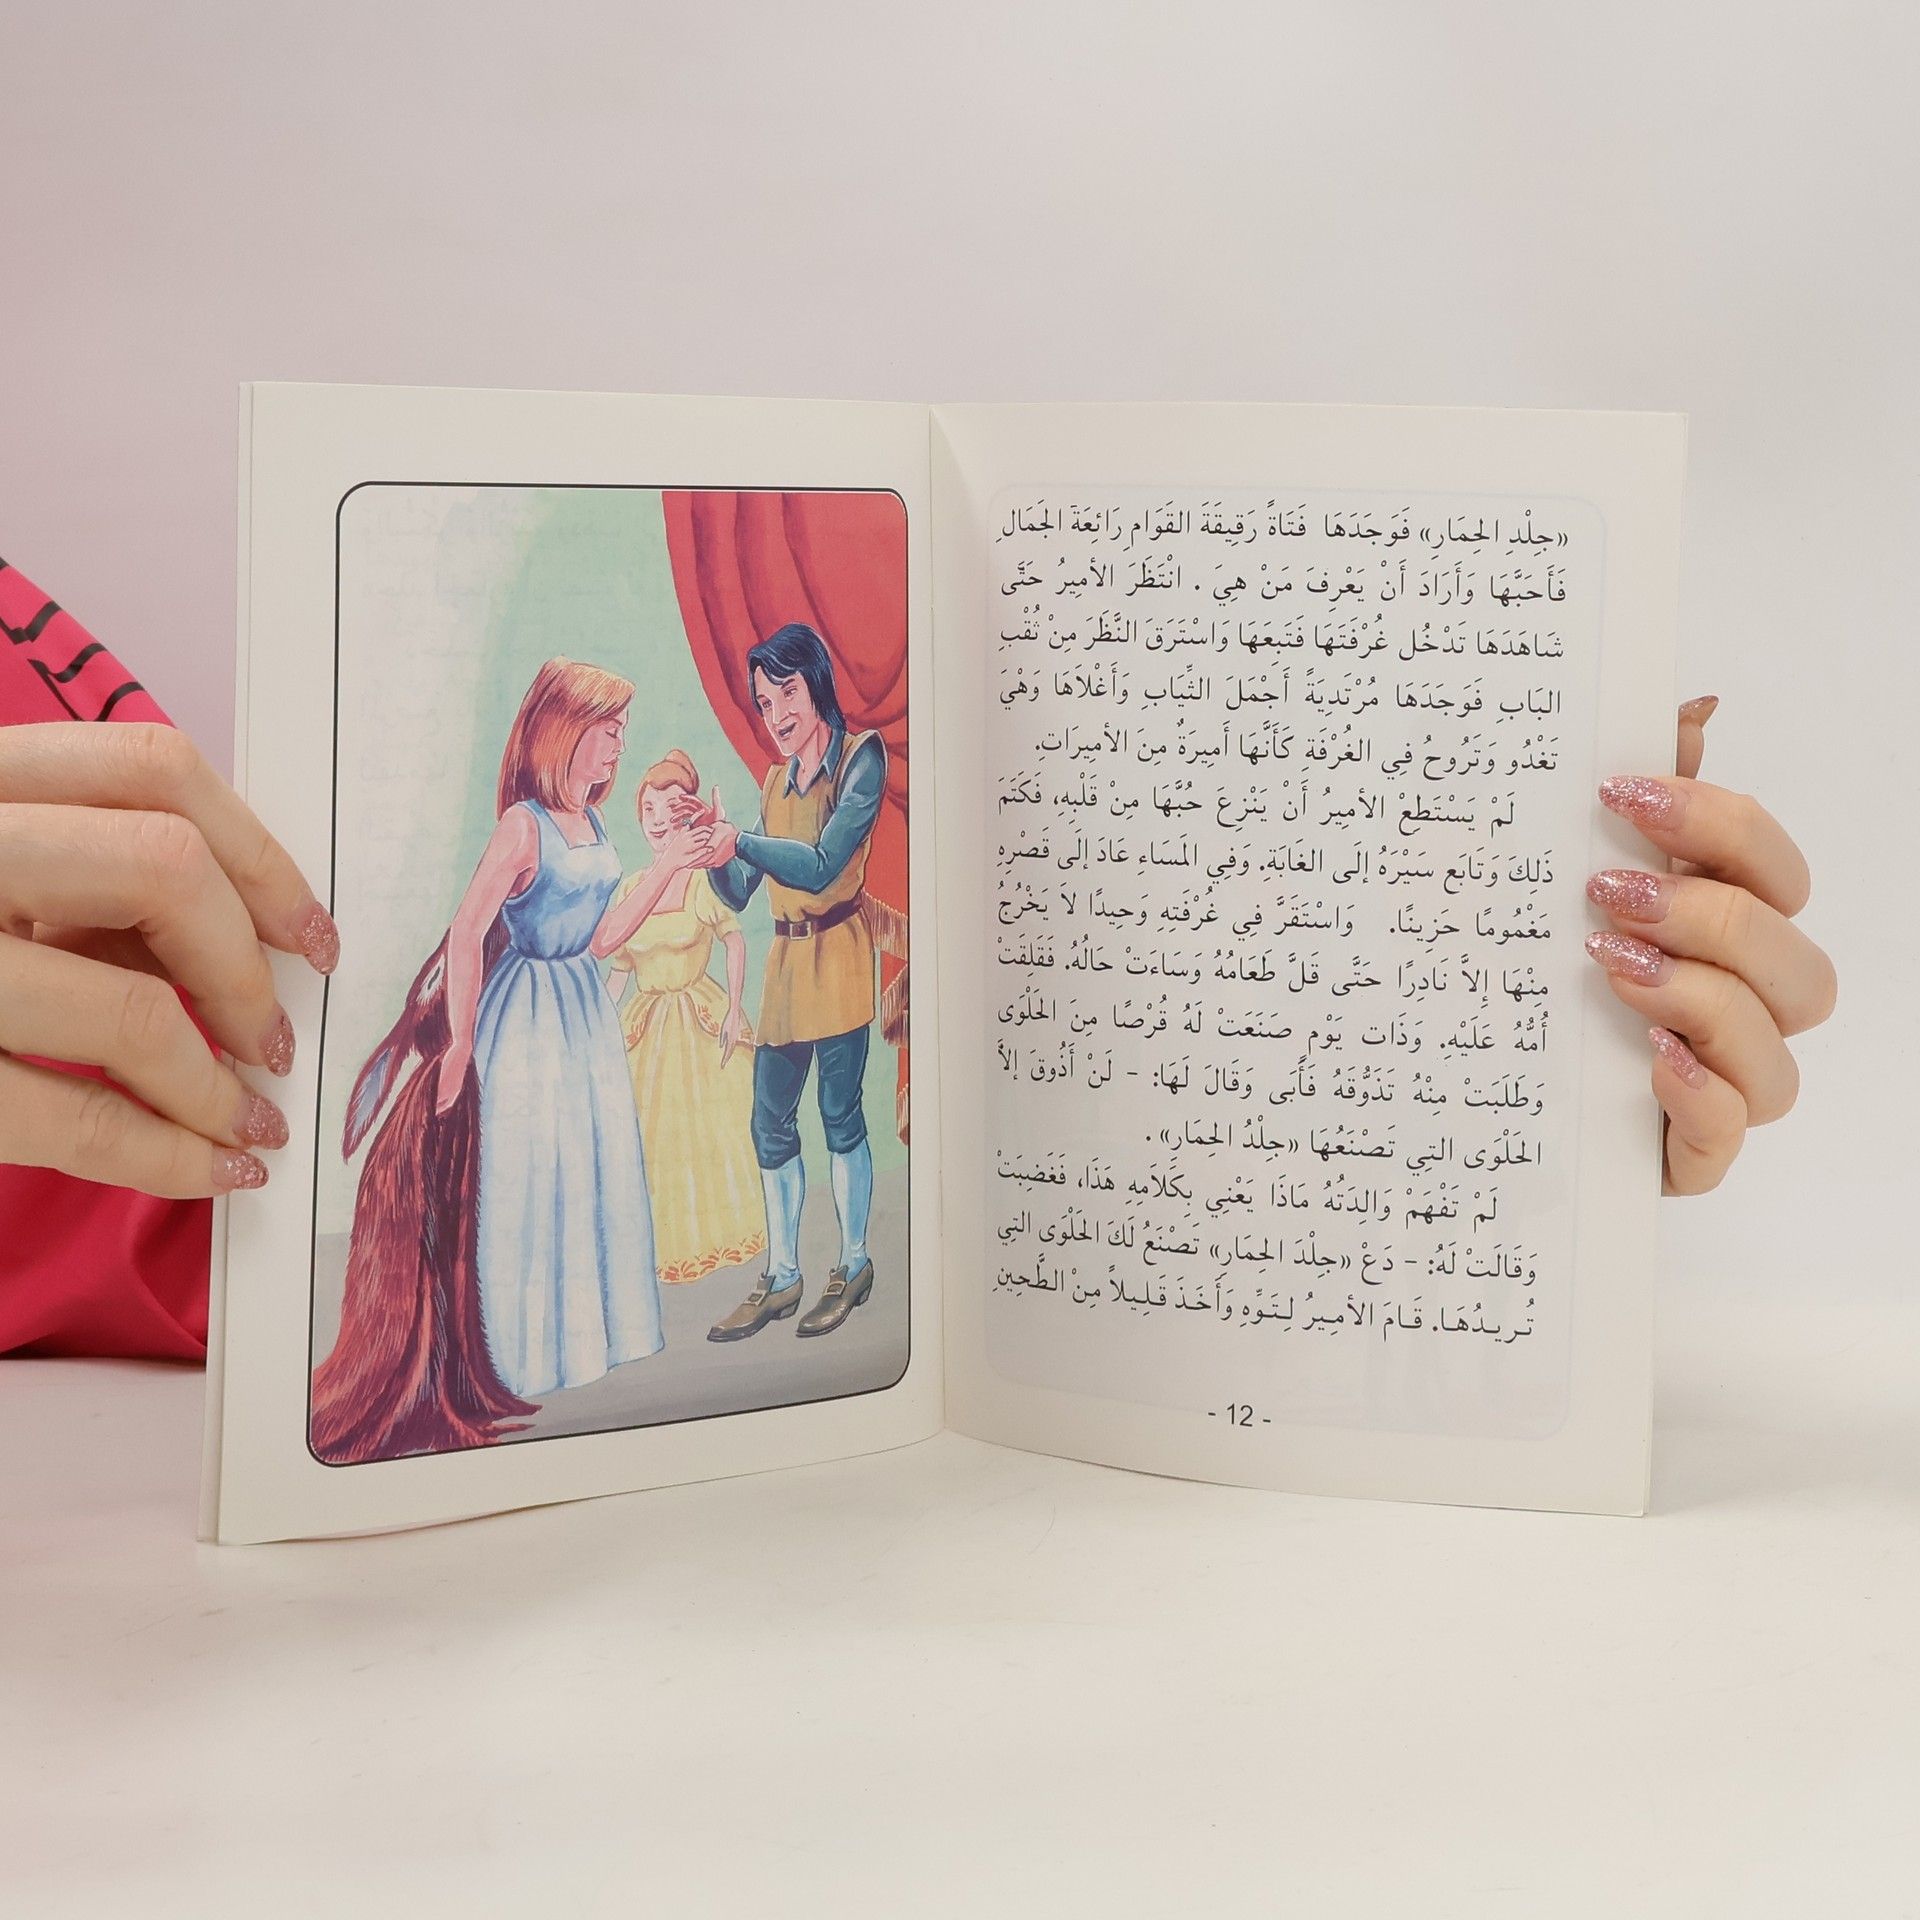 «جِلْدِ الحِمَارِ» فَوَجَدَهَا فَتَاةً رَقِيقَةَ القَوَامِ رَائِعَةَ الجَمَالِ
فَأَحَبَّهَا وَأَرَادَ أَنْ يَعْرِفَ مَنْ هِيَ . انْتَظَرَ الأمِيرُ حَتَّى
شَاهَدَهَا تَدْخُل غُرْفَتَهَا فَتَبِعَهَا وَاسْتَرَقَ النَّظَرَ مِنْ ثُقْبِ
البَابِ فَوَجَدَهَا مُرْتَدِيَةً أَجْمَلَ الثِّيَابِ وَأَغْلاَهَا وَهْيَ
تَغْدُو وَتَرُوحُ فِي الغُرْفَةِ كَأَنَّهَا أَمِيرَةٌ مِنَ الأمِيرَاتِ.
لَمْ يَسْتَطِعْ الأمِيرُ أَنْ يَنْزِعَ حُبَّهَا مِنْ قَلْبِهِ، فَكَتَمَ
ذَلِكَ وَتَابَع سَيْرَهُ إلَى الغَابَةِ. وَفِي المَسَاءِ عَادَ إلَى قَصْرِهِ
مَغْمُومًا حَزِينًا. وَاسْتَقَرَّ فِي غُرْفَتِهِ وَحِيدًا لاَ يَخْرُجُ
مِنْهَا إلاَّ نَادِرًا حَتَّى قَلَّ طَعَامُهُ وَسَاءَتْ حَالُهُ. فَقَلِقَتْ
أُمُّهُ عَلَيْهِ. وَذَات يَوْمٍ صَنَعَتْ لَهُ قُرْصًا مِنَ الحَلْوَى
وَطَلَبَتْ مِنْهُ تَذَوُّقَهُ فَأَبَى وَقَالَ لَهَا: - لَنْ أَذُوقَ إلاَّ
الحَلْوَى التِي تَصْنَعُهَا «جِلْدُ الحِمَارِ» .
لَمْ تَفْهَمْ وَالِدَتُهُ مَاذَا يَعْنِي بِكَلاَمِهِ هَذَا، فَغَضِبَتْ
وَقَالَتْ لَهُ: - دَعْ «جِلْدَ الحِمَارِ» تَصْنَعُ لَكَ الحَلْوَى التِي
تُرِيدُهَا. قَامَ الأمِيرُ لِتَوِّهِ وَأَخَذَ قَلِيلاً مِنْ الطَّحِينِ
- 12 -